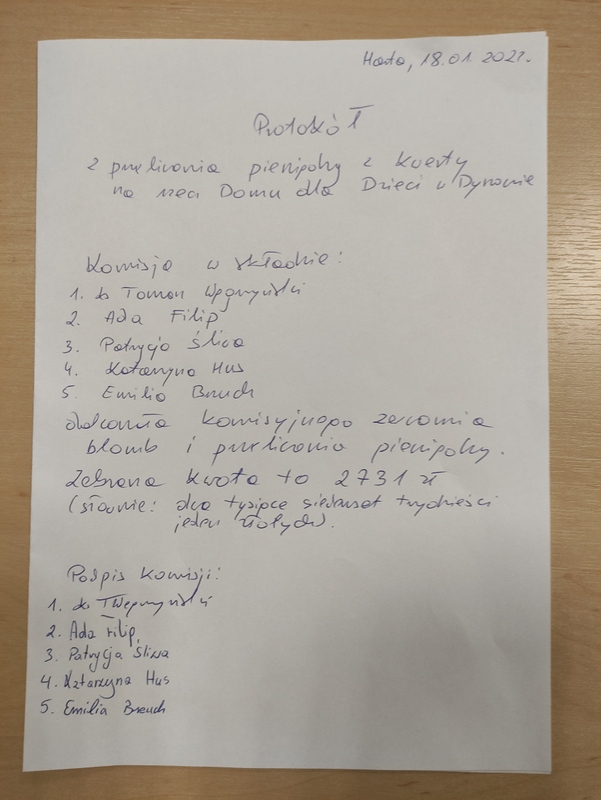 Harta, 18.01.2022r.
Protokół
z przeliczania pieniędzy z kwesty
na rzecz Domu dla Dzieci w Dynowie
Komisja w składzie:
1. ks Tomasz Węgrzyński
2. Ada Filip
3. Patrycja Śliwa
4. Katarzyna Hus
5. Emilia Brzuch
dokonała komisyjnego zerwania
plomb i przeliczania pieniędzy.
Zebrana kwota to 2731 zł
(słownie: dwa tysiące siedemset trzydzieści
jeden złotych).
Podpis Komisji:
1. ks TWęgrzyński
2. Ada Filip
3. Patrycja Śliwa
4. Katarzyna Hus
5. Emilia Brzuch